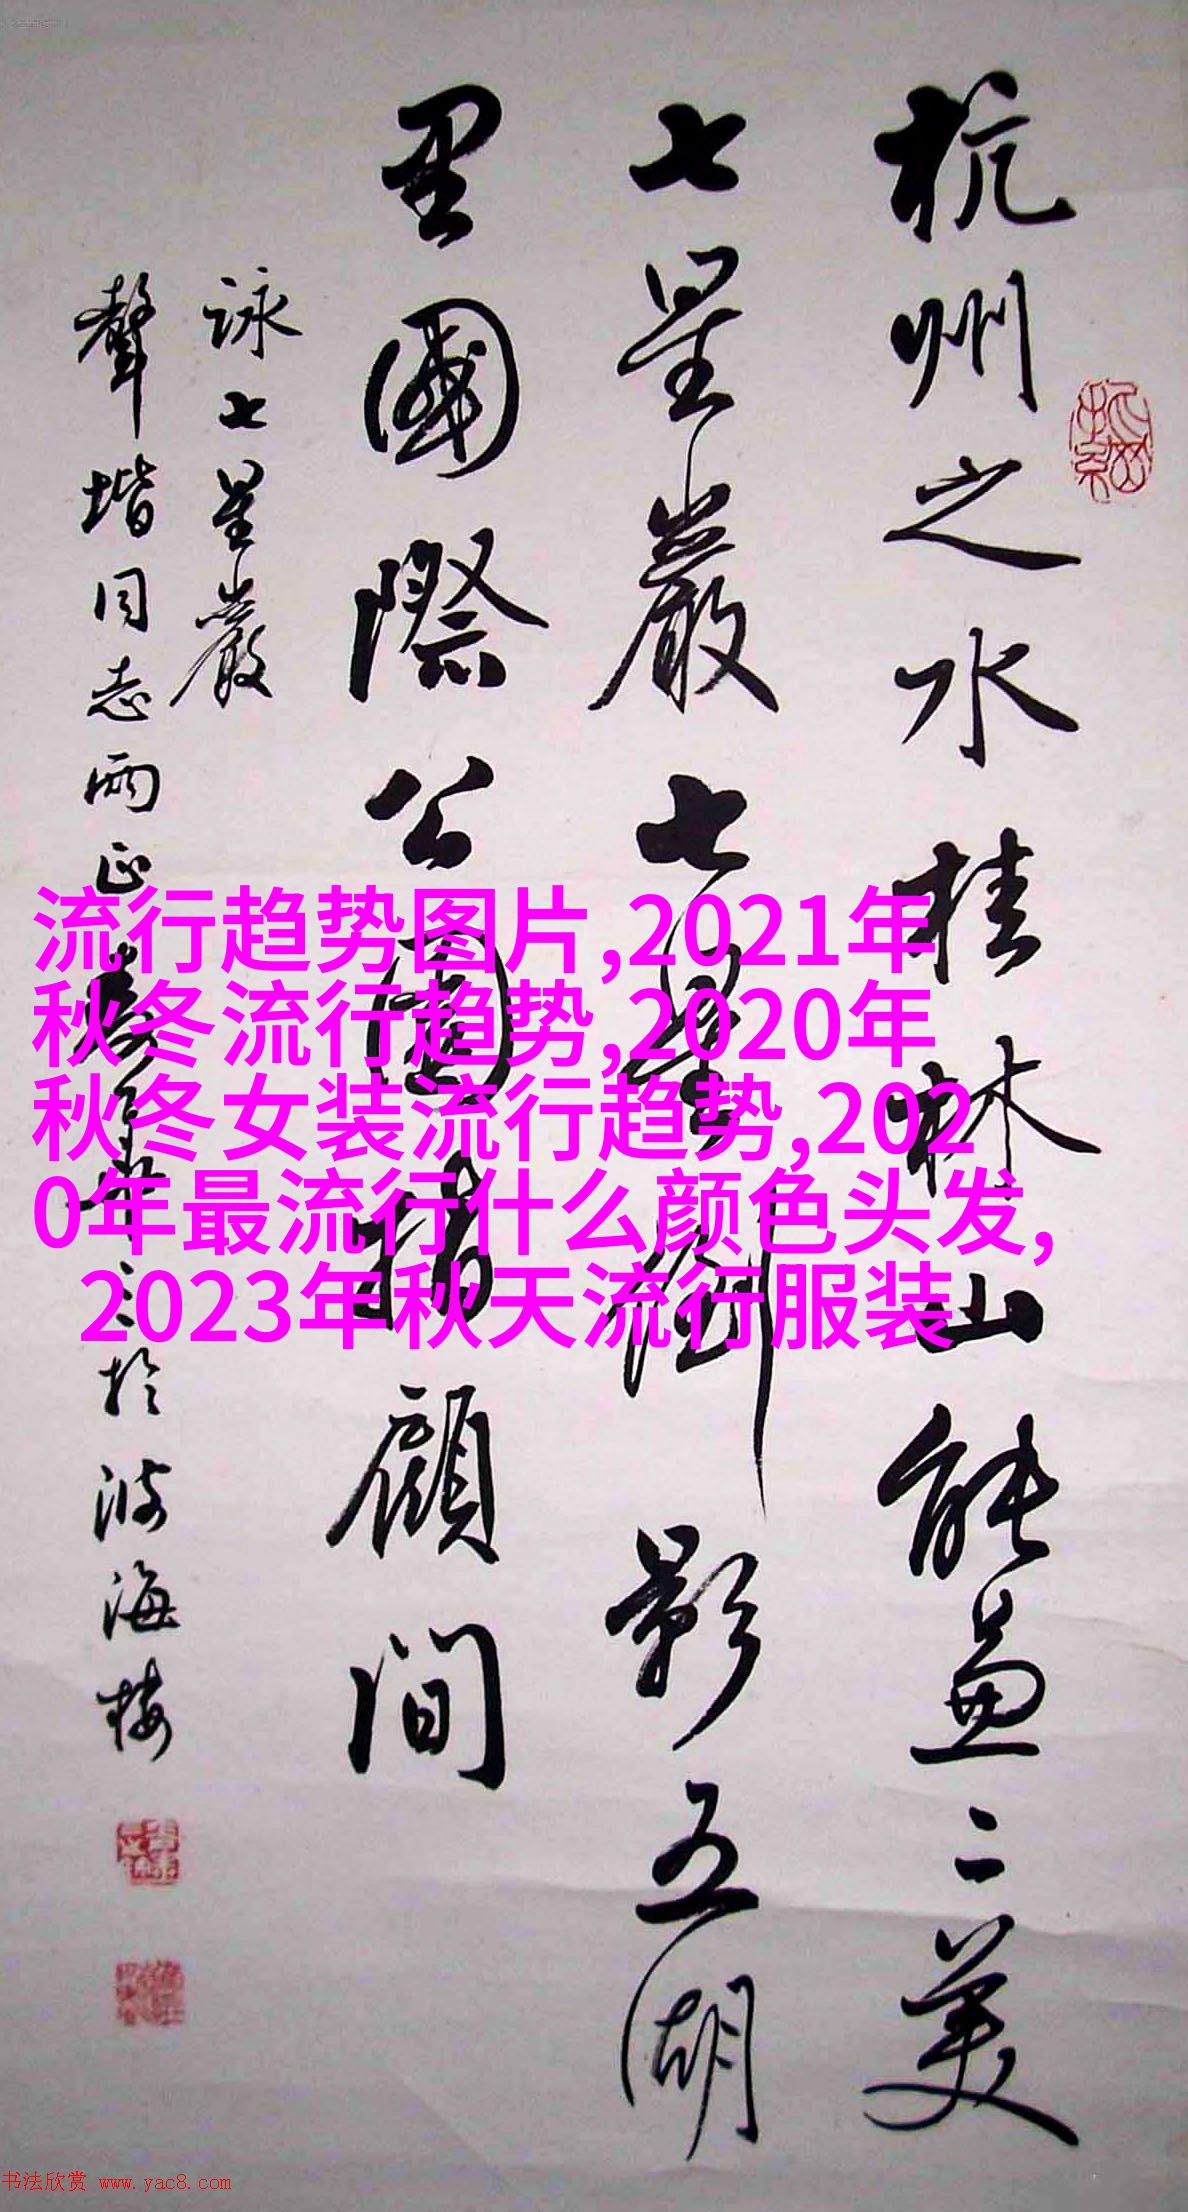 杭州之水桂林山能兼二美
七星巖七星倒影五湖
里國際公園指顧間
詠七星巖
聲揩同志兩正
於波海樓
流行趋势图片,2021年
秋冬流行趋势,2020年
秋冬女装流行趋势,202
0年最流行什么颜色头发,
2023年秋天流行服装
书法欣赏 www.yac8.com